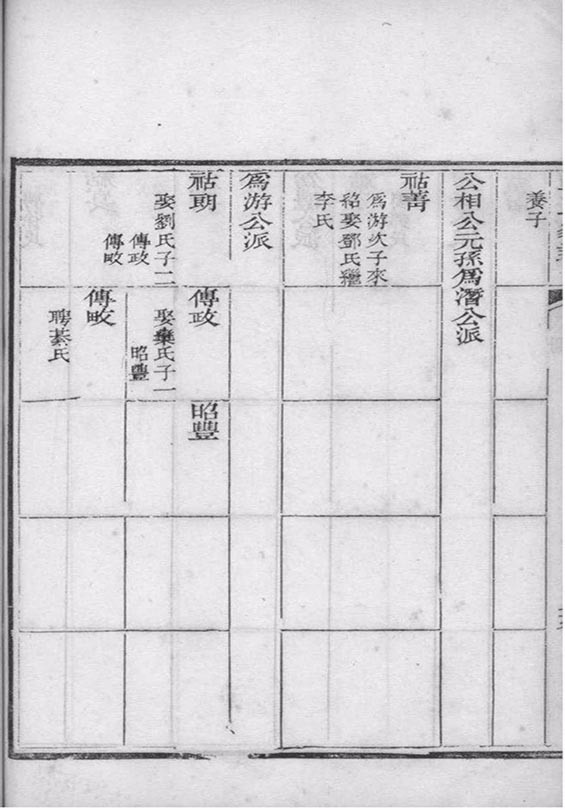 養子
公相公元孫爲濳公派
祜菁
爲游次子來
紹娶鄧氏繼
李氏
爲游公派
祜朙
娶劉氏子二
傳政
傳畋
傳政
娶
氏子一
昭豐
傳畋
聘綦氏
昭豐